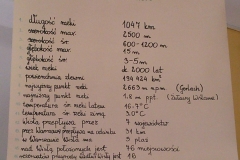 długość rzeki 1047 km
szerokość max. 2500 m
szerokość śr. 600-1200 m
głębokość max. 15 m
głębokość śr. 3-5m
wiek rzeki ok 2000 lat
powierzchnia dorzecza 194 424 km²
najwyższy punkt rzeki 2663 m n.p.m. (Gerlach)
najniższy punkt rzeki 1.8 m ppt. (Żuławy Wiślane)
temperatura śr rzeki latem 16.7°C
temperatura śr rzeki zimą 3.0°C
Wisła przepływa przez 9 województw
przez Warszawę przepływa na odcinku 31 km
w Warszawie Wisła ma 5 plaż
nad Wisłą położonych jest 76 miejscowości
18